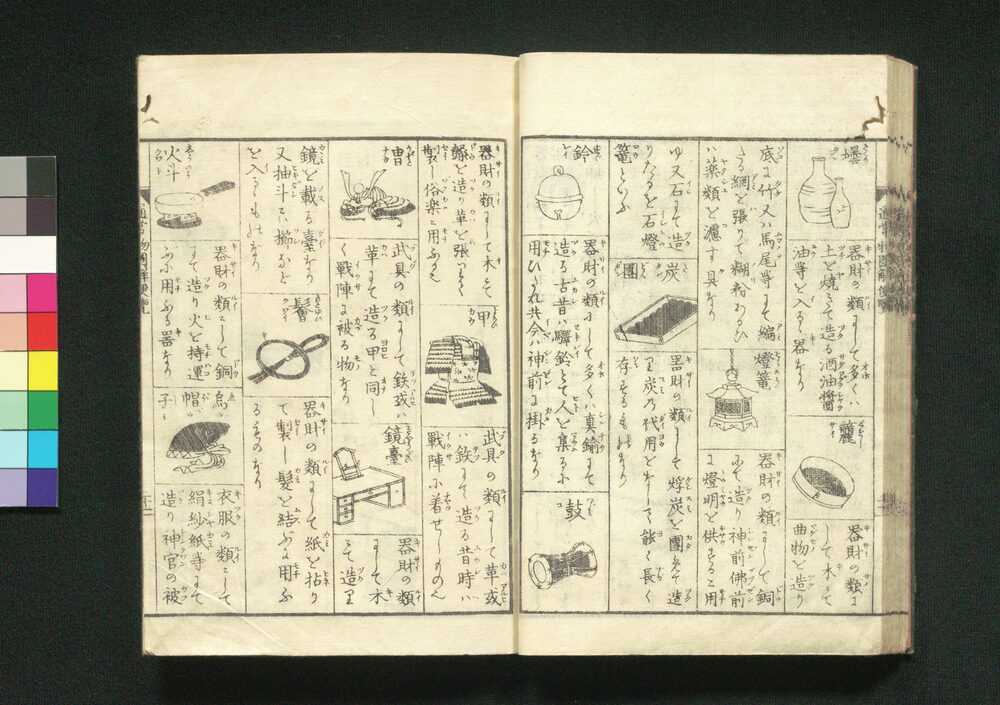 罎
器財の類にして多くハ
土を焼きて造る酒油醤
油等を入るゝ器なり
籭
器財の類に
して木にて
曲物を造り
底に竹又ハ馬尾等にて編
る網を張りて糊粉あるひ
ハ薬類を漉す具なり
燈篭
器財の類にして銅
にて造り神前佛前
に燈明を供するに用
ゆ又石にて造
りたるを石燈
篭といふ
炭團
器財の類にして炭を團めて造
り炭の代用となして能く長く
存するものなり
鈴
器財の類にして多くハ真鍮にて
造る古昔ハ驛鈴とて人を集るに
用ひられ共今ハ神前に掛るなり
鼓
器財の類にして木にて
造り革を張つて
製し俗楽に用ふ
甲
武具の類にして革或
ハ鉄にて造る昔時ハ
戰陣に着せしものなり
冑
武具の類にして鉄或ハ
革にて造る甲と同し
く戰陣に被る物なり
鏡臺
器財の類
にして木
にて造り
鏡を載る臺なり
又抽斗ていハ櫛など
を入るゝものなり
器財の類にして紙を拈り
て製し髪を結ふに用ふ
るものなり
火斗
器財の類にして銅
にて造り火を持運
ぶに用ふる器なり
烏帽子
衣服の類にして
絹紗紙等にて
造り神官の被